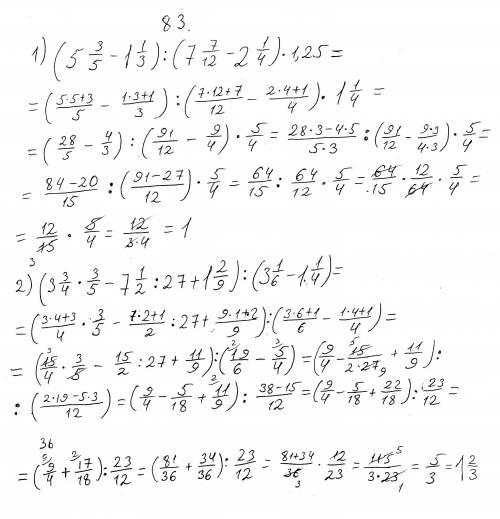 83.
1) (5 3/5 - 1 1/3) : (7 7/12 - 2 1/4) · 1,25 =
= (5·5+3/5 - 1·3+1/3) : (7·12+7/12 - 2·4+1/4) · 1 1/4 =
= (28/5 - 4/3) : (91/12 - 9/4) · 5/4 = 28·3-4·5/5·3 : (91/12 - 9·3/4·3) · 5/4 =
= 84-20/15 : (91-27/12) · 5/4 = 64/15 : 64/12 · 5/4 = 64/15 · 12/64 · 5/4 =
= 12/15 · 5/4 = 12/3·4 = 1
3
2) (3 3/4 · 3/5 - 7 1/2 : 27 + 1 2/9) : (3 1/6 - 1 1/4) =
= (3·4+3/4 · 3/5 - 7·2+1/2 : 27 + 9·1+2/9) : (3·6+1/6 - 1·4+1/4) =
= (3 15/4 · 3/5 - 15/2 : 27 + 11/9) : (2 19/6 - 3 5/4) = (9/4 - 5 15/2·27 9 + 11/9) :
: (2·19-5·3/12) = (9/4 - 5/18 + 2 11/9) : 38-15/12 = (9/4 - 5/18 + 22/18) : 23/12 =
36
= (9 9/4 + 2 17/18) : 23/12 = (81/36 + 34/36) : 23/12 = 81+34/36 3 · 12/23 = 115 5/3·23 1 = 5/3 = 1 2/3